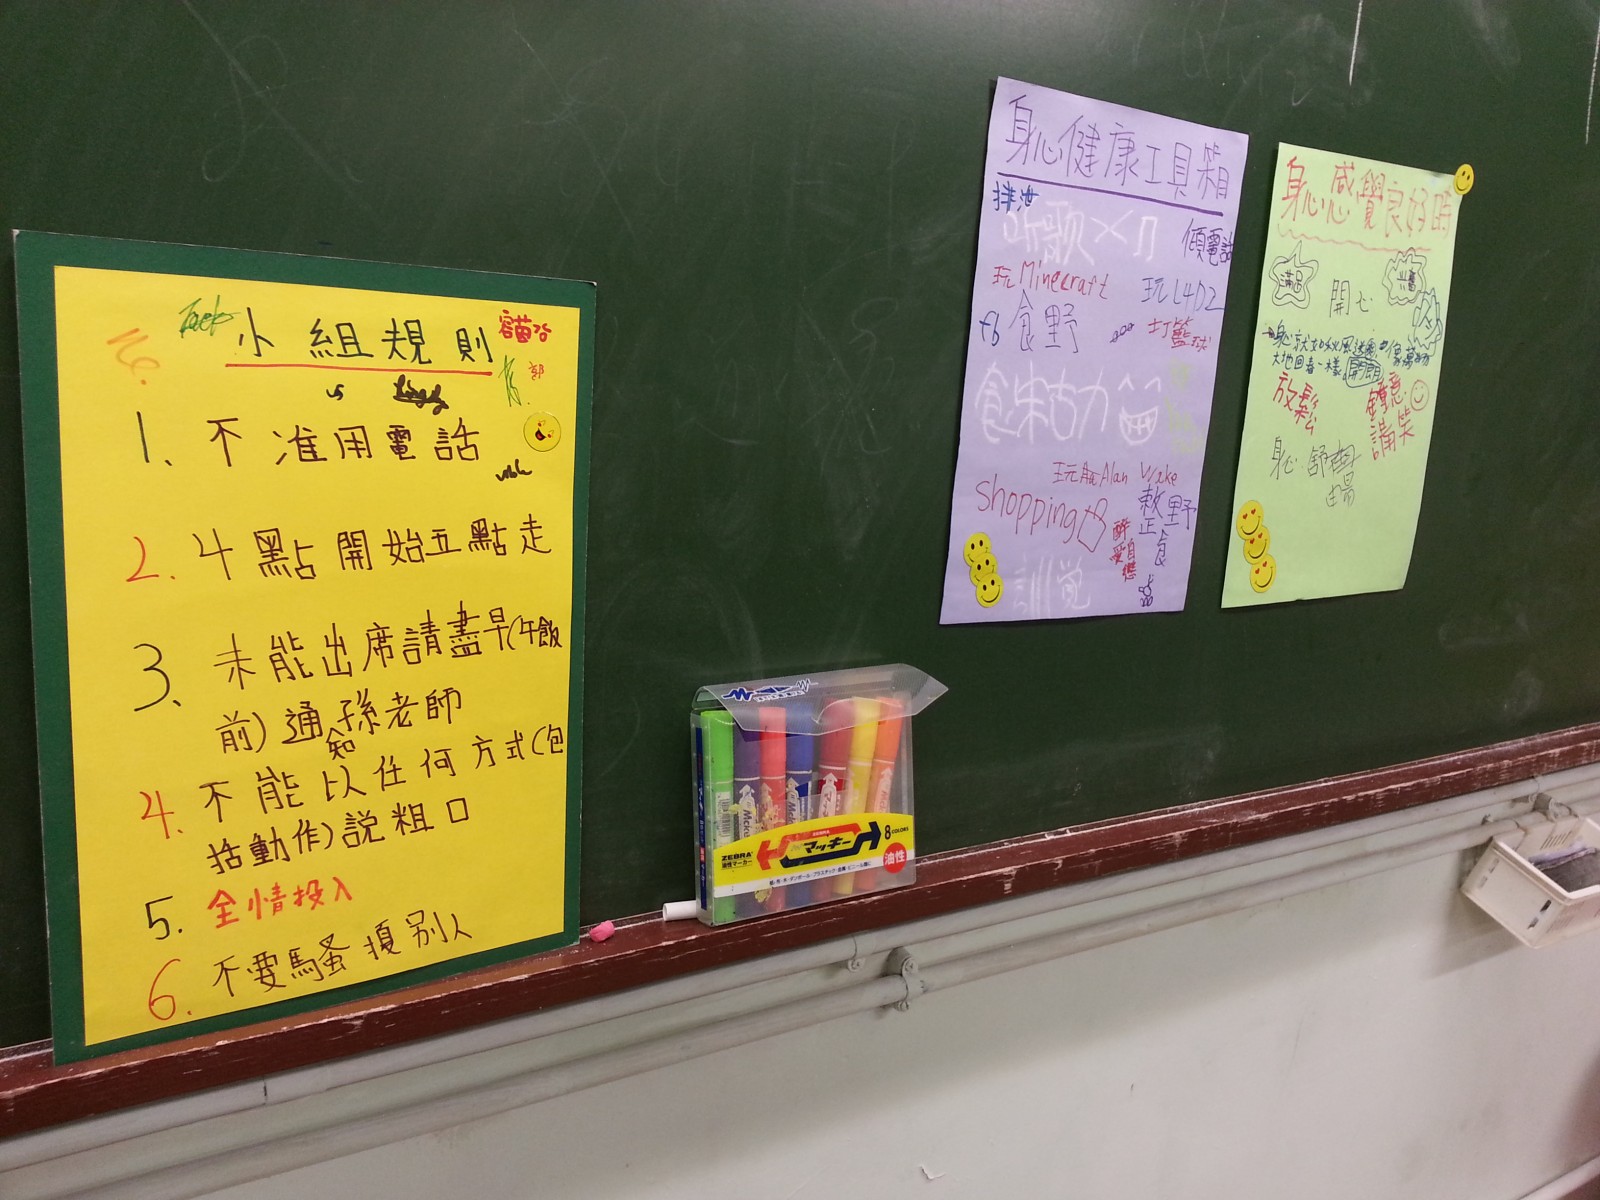 小組規則
1. 不准用電話
2. 4點開始五點走
3. 未能出席請盡早(午飯
前)通知孫老師
4. 不能以任何方式(包
括動作)說粗口
5. 全情投入
6. 不要騷擾別人
身心健康工具箱
排洩
听歌
傾電話
玩Minecraft
玩L4D2
fb
食野
打籃球
食朱古力
玩Alan Wake
shopping
整野食
訓覚
身心感覺良好時
滿足
開心
大地回春一樣
開朗
放鬆
鍾意講笑
身心舒暢
ZEBRA
油性マーカー
マッキー
8 COLORS
油性